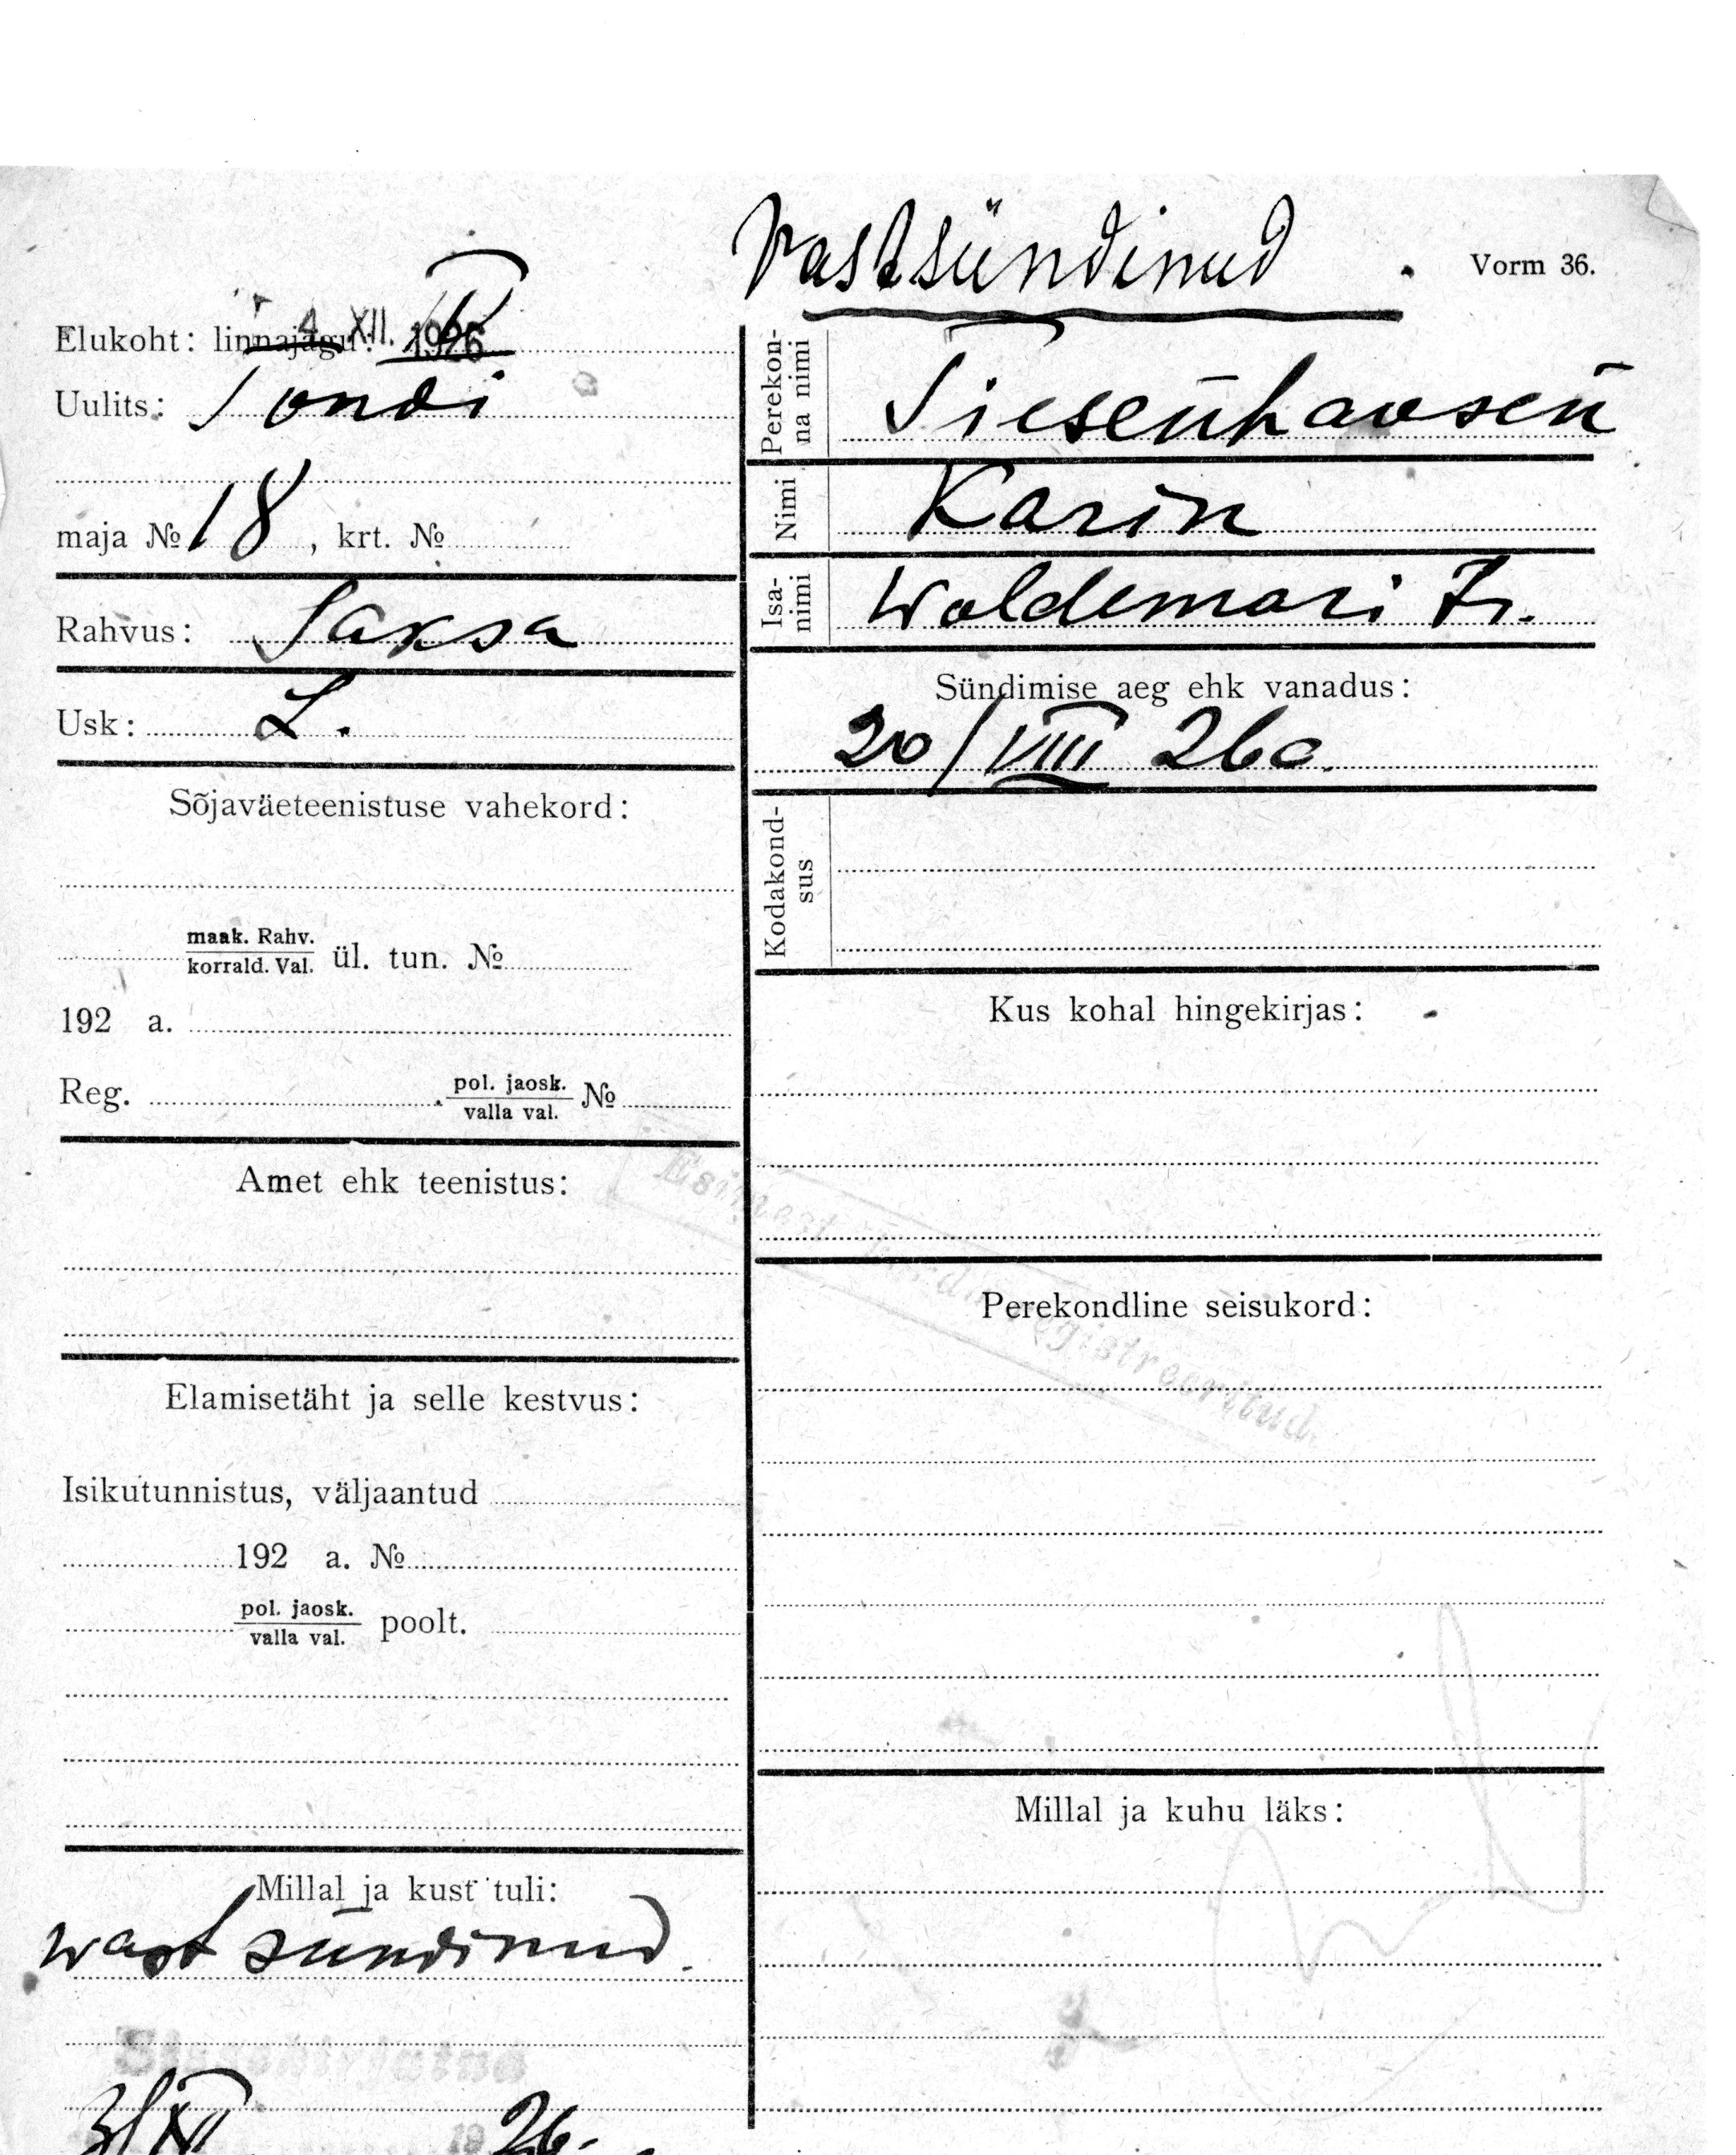 Vastsündinud
Vorm 36.
4. XII. 1926
Elukoht: linnajagu:
Uulits: Tondi
maja № 18, krt. №
Rahvus: Saksa
Usk: L.
Sõjaväeteenistuse vahekord:
maak. Rahv.
korrald. Val. ül. tun. №
192 a.
Reg. pol. jaosk.
valla val. №
Amet ehk teenistus:
Elamisetäht ja selle kestvus:
Isikutunnistus, väljaantud
192 a. №
pol. jaosk.
valla val. poolt.
Millal ja kust tuli:
wast sündinud.
26.
Perekon-
na nimi Tiesenhausen
Nimi Karin
Isa-
nimi Woldemari tr.
Sündimise aeg ehk vanadus:
20/VIII 26a.
Kodakond-
sus
Kus kohal hingekirjas:
Esimest kord registreeritud.
Perekondline seisukord:
Millal ja kuhu läks: